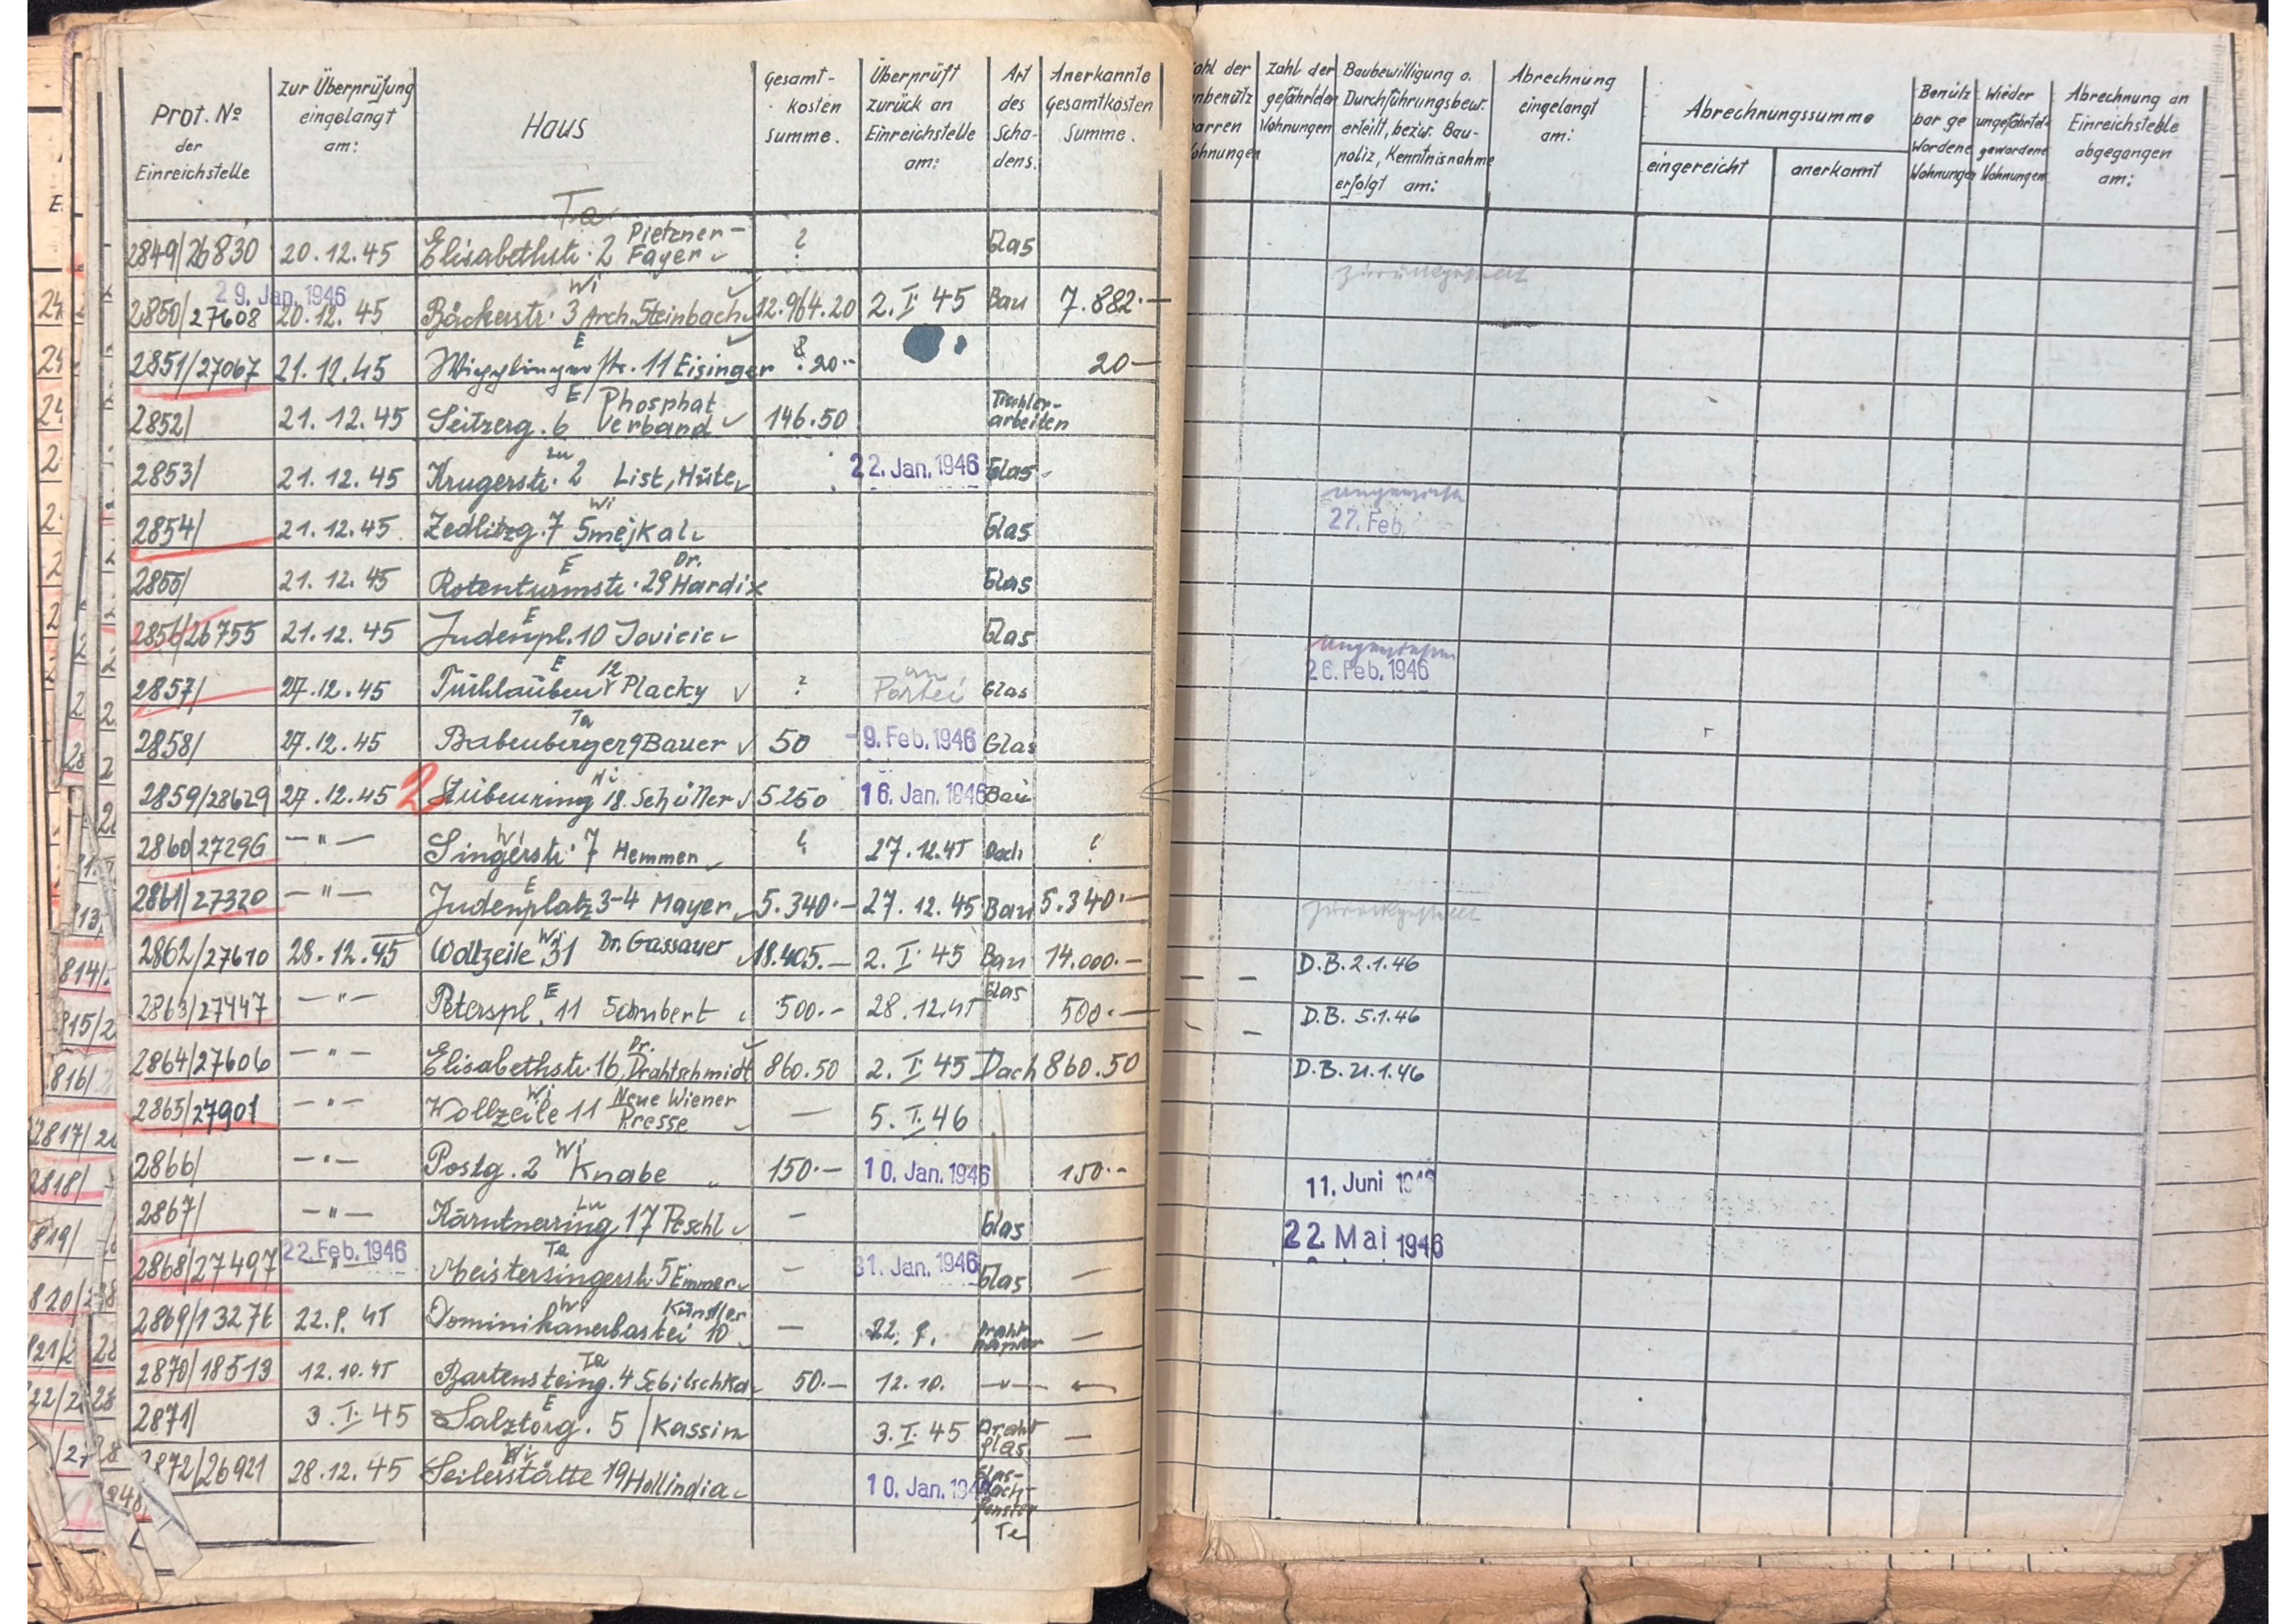 Prot. No der Einreichstelle | Zur Überprüfung eingelangt am: | Haus | Gesamt-kosten Summe. | Überprüft zurück an Einreichstelle am: | Art des Scha-dens. | Anerkannte Gesamtkosten Summe. | Zahl der gefährdeten Wohnungen | Baubewilligung o. Durchführungsbew. erteilt, bezw. Bau-poliz. Kenntnisnahme erfolgt am: | Abrechnung eingelangt am: | Abrechnungssumme eingereicht | anerkannt | Benütz bar ge wordene Wohnungen | Wieder ungefährtet gewordene Wohnungen | Abrechnung an Einreichstelle abgegangen am:
Ta
2849/26830 20.12.45 Elisabethstr. 2 Pietzner-Fayer ? Glas
29. Jan. 1946 Wi zurückgestellt
2850/27608 20.12.45 Bäckerstr. 3 Arch. Steinbach 12.964.20 2.I.45 Bau 7.882.—
E
2851/27067 21.12.45 Wipplingerstr. 11 Eisinger 20.- 20—
E
2852/ 21.12.45 Seitzerg. 6 Phosphat Verband 146.50 Tischler-arbeiten
Lu
2853/ 21.12.45 Krugerstr. 2 List, Hüte 22. Jan. 1946 Glas
Wi
2854/ 21.12.45 Zedlitzg. 7 Smejkal Glas 27. Feb.
E Dr.
2855/ 21.12.45 Rotenturmstr. 29 Hardix Glas
E
2856/26755 21.12.45 Judenpl. 10 Jovicic Glas
E 12
2857/ 27.12.45 Tuchlauben Placky ? an Partei Glas 26. Feb. 1946
Ta
2858/ 27.12.45 Babenberger 9 Bauer 50 -9. Feb. 1946 Glas
Wi
2859/28629 27.12.45 2 Stubenring 18. Schüller 5250 16. Jan. 1946 Bau
Wi
2860/27296 —"— Singerstr. 7 Hemmen ? 27.12.45 Dach ?
E
2861/27320 —"— Judenplatz 3-4 Mayer 5.340.— 27.12.45 Bau 5.340.— zurückgestellt
Wi
2862/27610 28.12.45 Wollzeile 31 Dr. Gassauer 18.405.— 2.I.45 Bau 14.000.— – – D.B. 2.1.46
E
2863/27447 —"— Peterspl. 11 Schubert 500.— 28.12.45 Glas 500.— – – D.B. 5.1.46
Dr.
2864/27606 —"— Elisabethstr. 16, Drahtschmidt 860.50 2.I.45 Dach 860.50 D.B. 21.1.46
Wi
2865/27901 —"— Wollzeile 11 Neue Wiener Presse — 5.I.46
Wi
2866/ —"— Postg. 2 Knabe 150.— 10. Jan. 1946 150.— 11. Juni
Lu
2867/ —"— Kärntnerring 17 Peschl – Glas 22. Mai 1946
Ta
2868/27497 22. Feb. 1946 " Meistersingerstr. 5 Emmer – 31. Jan. 1946 Glas —
Wi
2869/13276 22.9.45 Dominikanerbastei 10 Künstler — 22.9. Drahtpapier —
Ta
2870/18513 12.10.45 Bartensteing. 4 Sebilschka 50.— 12.10. —"— —
E
2871/ 3.I.45 Salztorg. 5 / Kassin 3.I.45 Drahtglas —
Wi
2872/26921 28.12.45 Seilerstätte 19 Hollindia 10. Jan. Glas-Dach-fenster
Te